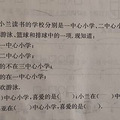 小兰读书的学校分别是一中心小学、二中心小学
欢游泳、篮球和排球中的一项,现知道:
一中心小学;
二中心小学;
的不在三中心小学;
欢游泳。
在( )中心小学,喜爱的是( );小兰在( )
中心小学,喜爱的是( )。